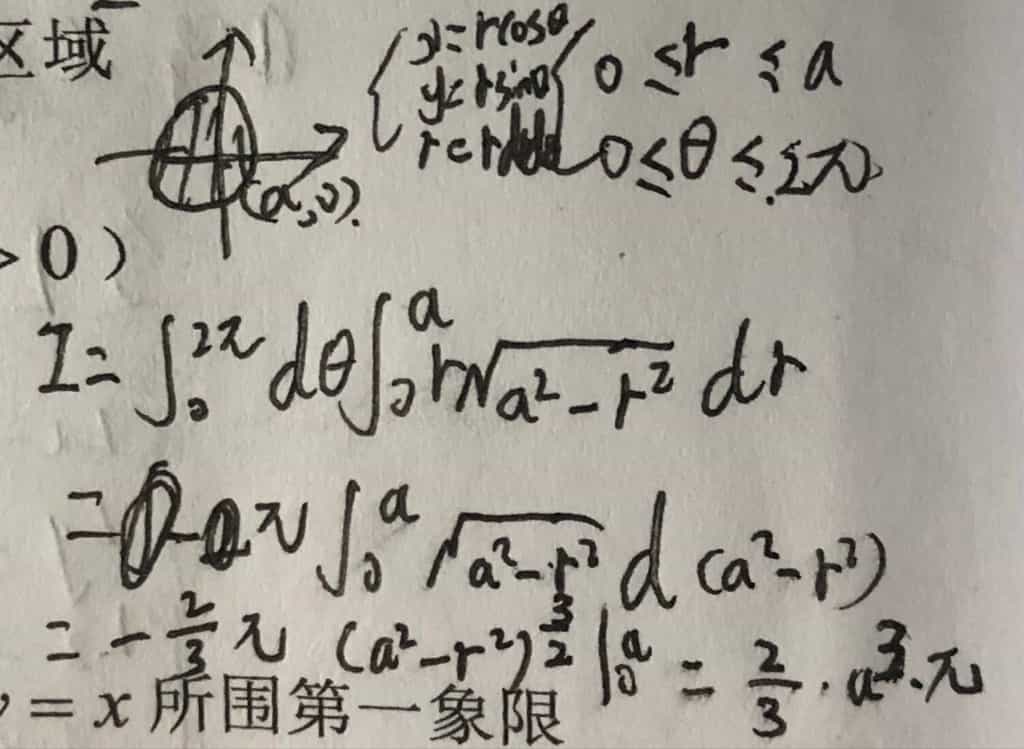 区域
{x=rcosθ
y=rsinθ
r=r
{0≤r≤a
0≤θ≤2π
(a,0).
>0）
I=∫₀^{2π}dθ∫₀^a r√(a²-r²) dr
=-π∫₀^a √(a²-r²) d(a²-r²)
=-2/3 π (a²-r²)^{3/2}|₀^a = 2/3·a³·π
=x 所围第一象限